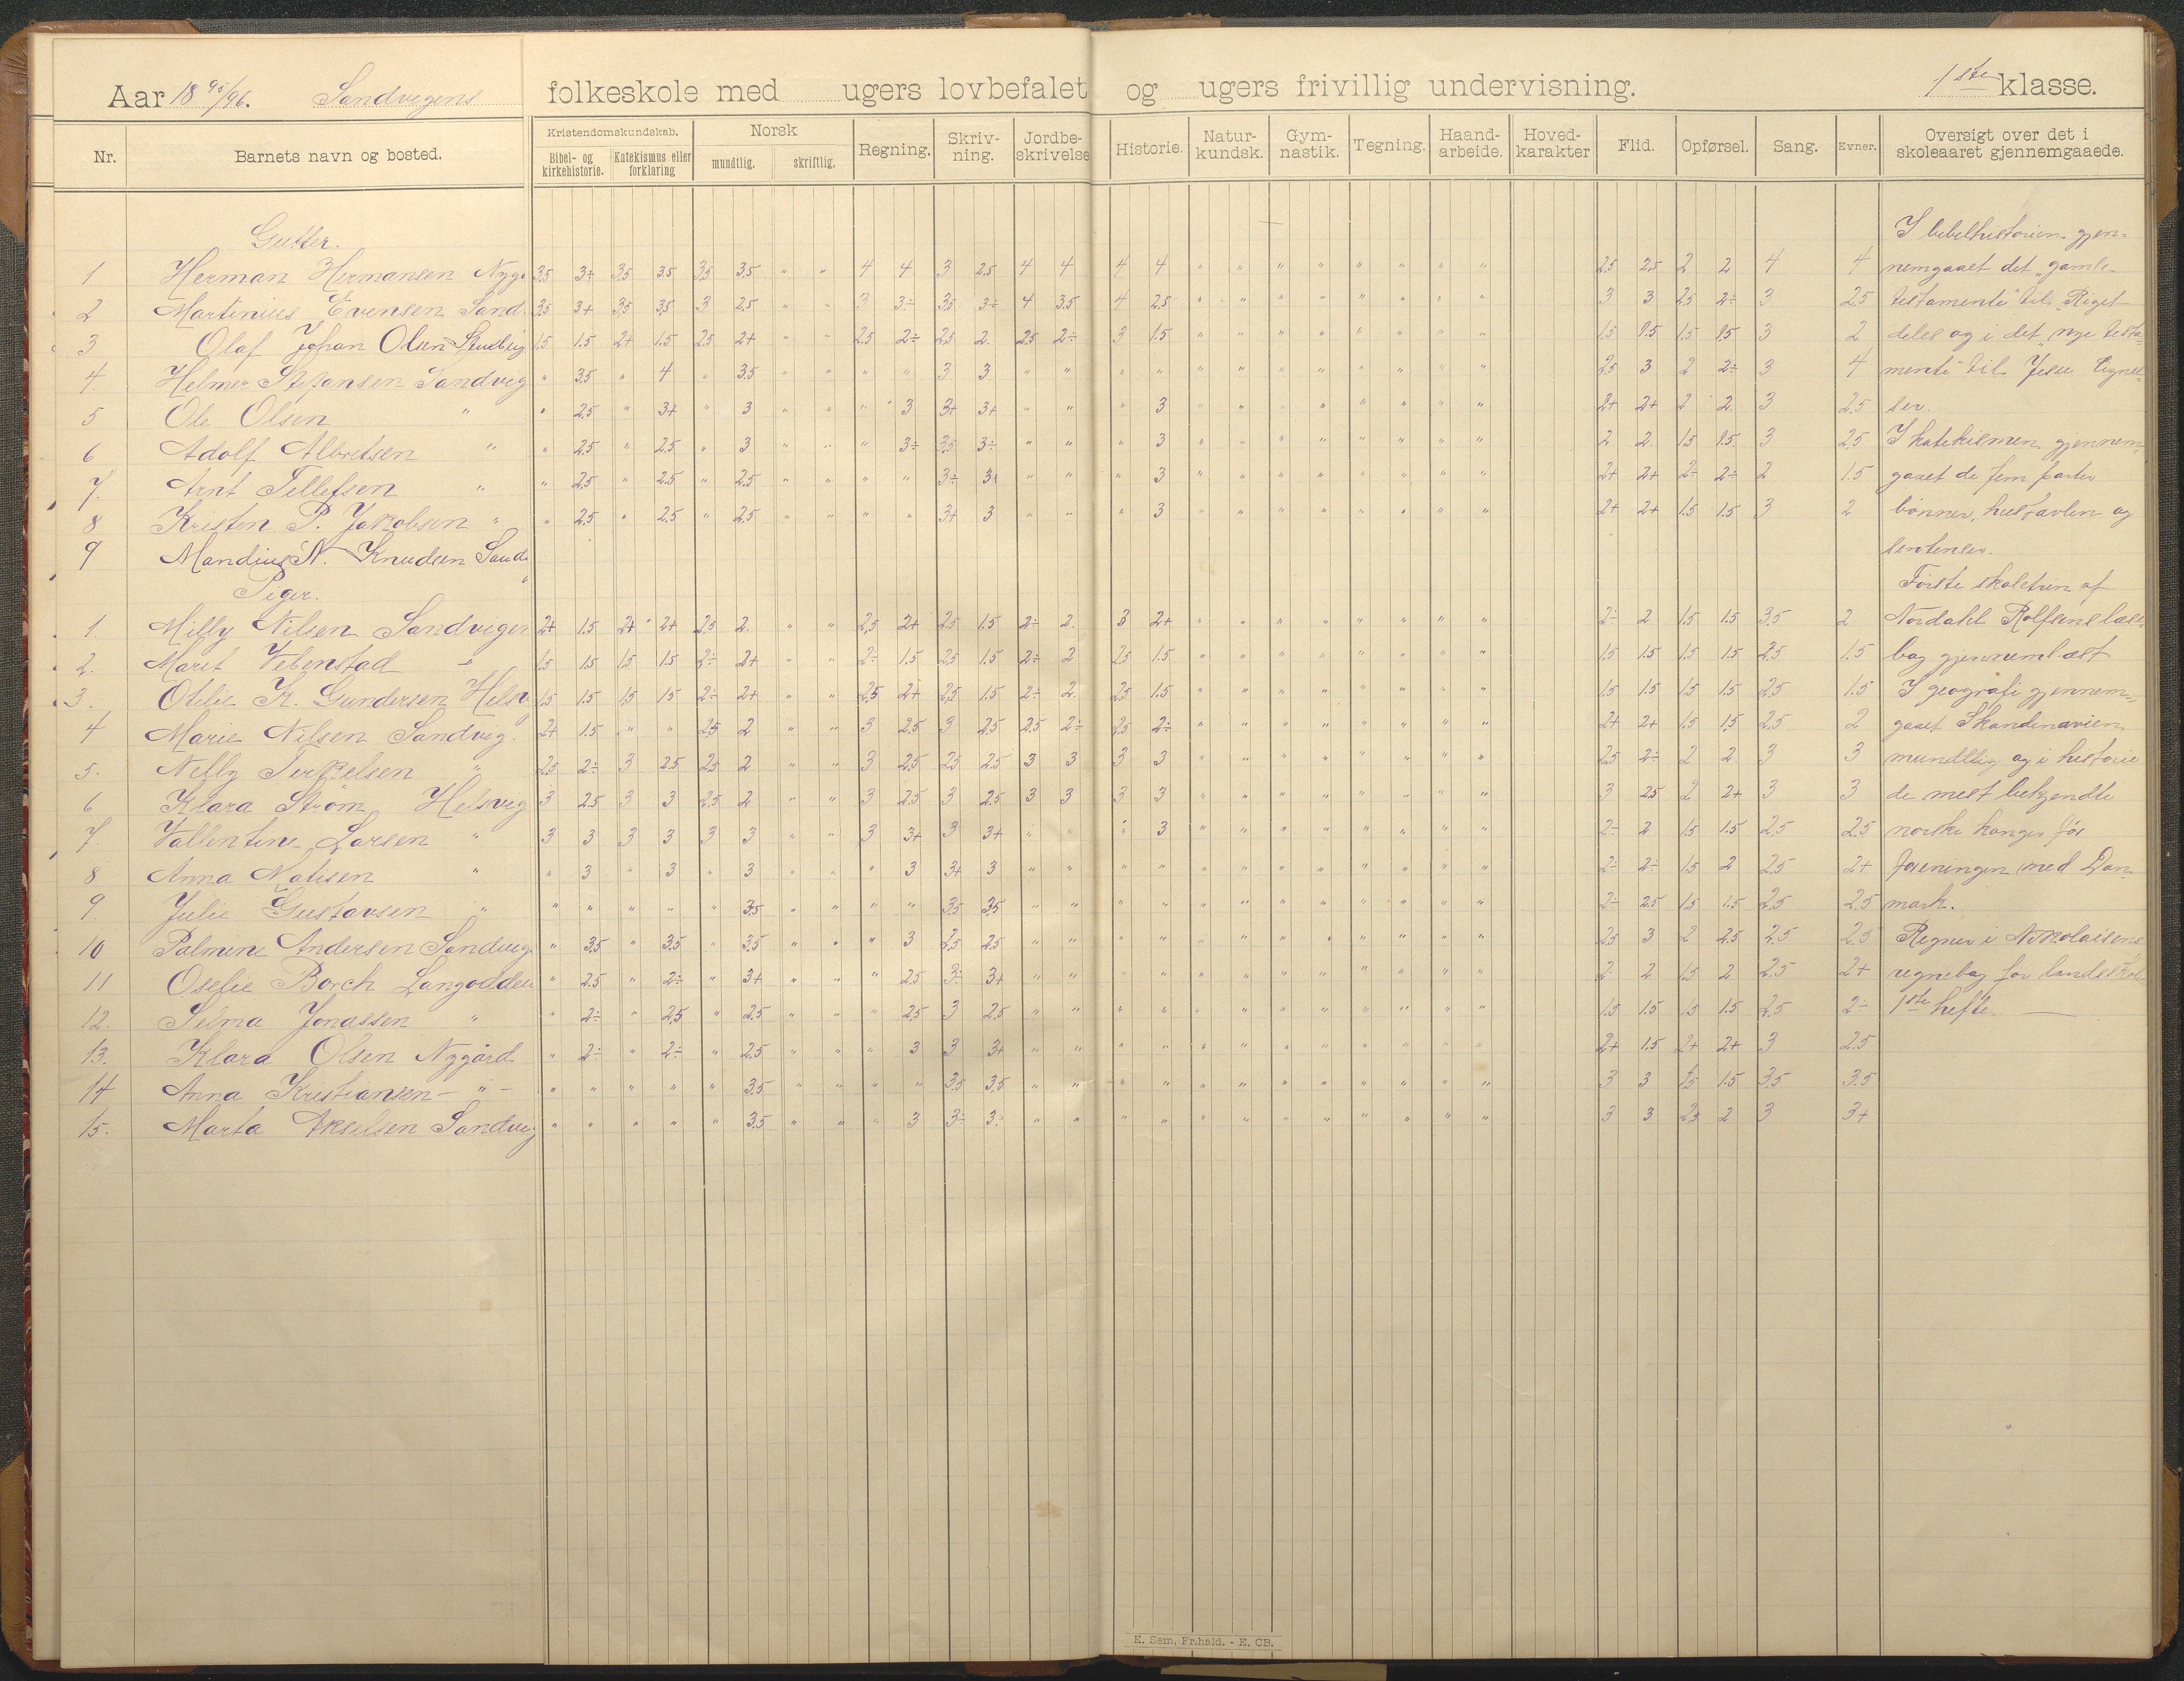 Aar 18 95/96. Sandvigens folkeskole med ugers lovbefalet og ugers frivillig undervisning. 1ste klasse.
Nr. Barnets navn og bosted. Kristendomskundskab. Bibel- og kirkehistorie. Katekismus eller forklaring Norsk mundtlig. skriftlig. Regning. Skriv-ning. Jordbe-skrivelse Historie. Natur-kundsk. Gym-nastik. Tegning. Haand-arbeide. Hoved-karakter Flid. Opførsel. Sang. Evner. Oversigt over det i skoleaaret gjennemgaaede.
Gutter. I bibelhistorien gjen-
1 Herman Hermansen 3.5 3+ 3.5 3.5 3.5 3.5 " " 4 4 3 2.5 4 4 4 4 " " " " " " " " 2.5 2.5 2 2 4 4 nemgaaet det "gamle
2 Martinius Evensen Sand 3.5 3+ 3.5 3.5 3 2.5 " " 3 3÷ 3.5 3÷ 4 3.5 4 2.5 " " " " " " " " 3 3 2.5 2÷ 3 2.5 testamente" til "Riget
3 Olaf Johan Olsen 1.5 1.5 2+ 1.5 2.5 2+ " " 2.5 2÷ 2.5 2. 2.5 2÷ 3 1.5 " " " " " " " " 1.5 1.5 1.5 1.5 3 2 deles og i det "nye testa-
4 Helmer Stefansen Sandvig " 3.5 " 4 " 3.5 " " " " 3 3 " " " " " " " " " " " " 2.5 3 2 2÷ 3 4 mente" til Jesu
5 Ole Olsen " " 2.5 " 3+ " 3 " " " 3 3+ 3+ " " " 3 " " " " " " " " 2+ 2+ 2 2 3 2.5 ser.
6 Adolf Albretsen " " 2.5 " 2.5 " 3 " " " 3÷ 3.5 3÷ " " " 3 " " " " " " " " 2 2 1.5 1.5 3 2.5 I katekismen gjennem-
7. Arnt Tellefsen " " 2.5 " 2.5 " 2.5 " " " " 3÷ 3+ " " " 3 " " " " " " " " 2+ 2+ 2÷ 2÷ 2 1.5 gaaet de fem parter
8 Kristen P. Jakobsen " " 2.5 " 2.5 " 2.5 " " " " 3+ 3 " " " 3 " " " " " " " " 2+ 2+ 1.5 1.5 3 2 bønner, hustavlen og
9 Mandius N. Knudsen Sand sentenser.
Piger. Første skoletrin af
1 Milly Nilsen Sandvigen 2+ 1.5 2+ 2+ 2.5 2. " " 2.5 2+ 2.5 1.5 2÷ 2. 3 2+ " " " " " " " " 2÷ 2 1.5 1.5 3.5 2 Nordahl Rolfsens læse-
2. Marit Vebenstad " 1.5 1.5 1.5 1.5 2÷ 2+ " " 2÷ 1.5 2.5 1.5 2÷ 2 2.5 1.5 " " " " " " " " 1.5 1.5 1.5 1.5 2.5 1.5 bog gjennemlæst
3. Otilie K. Gundersen 1.5 1.5 1.5 1.5 2÷ 2+ " " 2.5 2+ 2.5 1.5 2÷ 2. 2.5 1.5 " " " " " " " " 1.5 1.5 1.5 1.5 2.5 1.5 I geografi gjennem-
4 Marie Nilsen Sandvig. 2+ 1.5 " " 2.5 2 " " 3 2.5 3 2.5 2.5 2÷ 2.5 2÷ " " " " " " " " 2+ 2+ 1.5 1.5 2.5 2 gaaet Skandinavien
5. Nelly Terkelsen " 2.5 2÷ 3 2.5 2.5 2 " " 3 2.5 2.5 2.5 3 3 3 3 " " " " " " " " 2.5 2÷ 2 2 3 3 mundtlig og i historie
6 Klara Strøm Helsvig 3 2.5 3 3 2.5 2 " " 3 2.5 3 2.5 3 3 3 3 " " " " " " " " 3 2.5 2 2+ 3 3 de mest bekjendte
7. Vallentine Larsen " 3 3 3 3 3 3 " " 3 3+ 3 3+ " " " 3 " " " " " " " " 2÷ 2 1.5 1.5 2.5 2.5 norske konger før
8 Anna Matisen " " 3 " 3 " 3 " " " 3 3+ 3 " " " " " " " " " " " " 2÷ 2÷ 1.5 2 2.5 2+ foreningen med Dan-
9. Julie Gustavsen " " " " " " 3.5 " " " " 3.5 3.5 " " " " " " " " " " " " 2÷ 2.5 1.5 1.5 2.5 2.5 mark.
10 Palmine Andersen Sandvig " 3.5 " 3.5 " 3.5 " " " 3 2.5 2.5 " " " " " " " " " " " " 2.5 3 2 2.5 2.5 2.5 Regnet i Nikolaisens
11 Oselie Borch Langodden " 2.5 " 2÷ " 3+ " " " 2.5 3÷ 3+ " " " " " " " " " " " " 2 2 1.5 2 2.5 2+ regnebog for landsskol
12. Selma Jonassen " " 2÷ " 2.5 " 2.5 " " " 2.5 3 2.5 " " " " " " " " " " " " 1.5 1.5 1.5 1.5 2.5 2÷ 1ste hefte.
13. Klara Olsen Nygård " 2÷ " 2÷ " 2.5 " " " 3 3 3+ " " " " " " " " " " " " 2+ 1.5 2+ 2+ 3 2.5
14 Anna Kristiansen - " - " " " " " 3.5 " " " " 3.5 3.5 " " " " " " " " " " " " 3 3 1.5 1.5 3.5 3.5
15. Marta Akselsen Sandvig " " " " " 3.5 " " " 3 3÷ 3÷ " " " " " " " " " " " " 3 3 2.5 2 3 3+
E. Sem, Fr.hald. - E. CB.